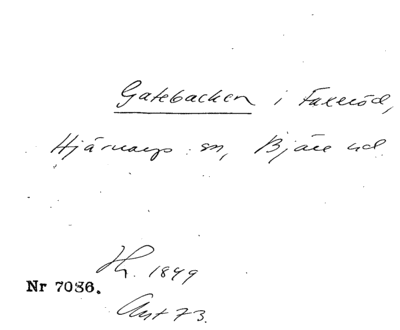 Gatebacken i Faxeröd,
Hjärnarps sn, Bjäre hd
Hr. 1849
Nr 7086.
Ant 73.